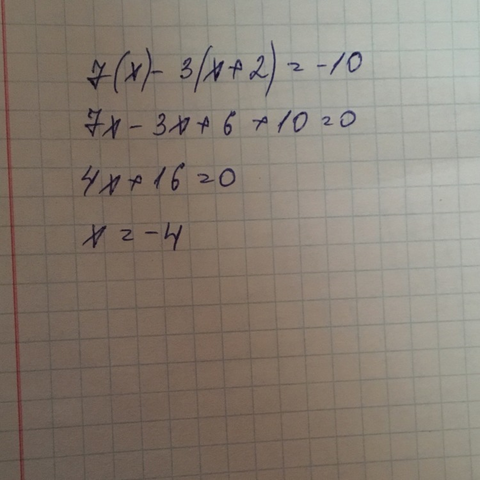 7(x) - 3(x + 2) = -10
7x - 3x + 6 + 10 = 0
4x + 16 = 0
x = -4